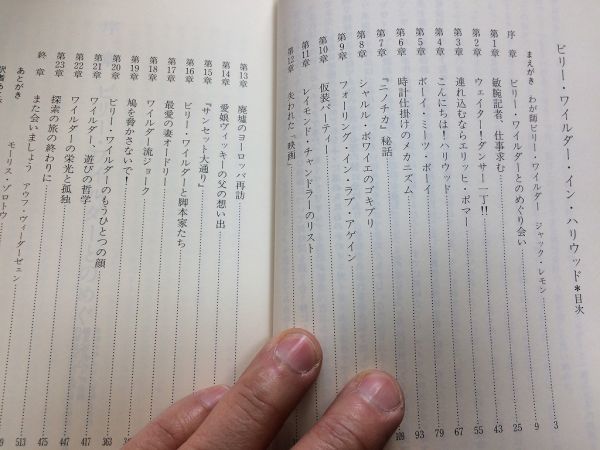 ビリー・ワイルダー・イン・ハリウッド＊目次
まえがき わが師ビリー・ワイルダー ジャック・レモン 3
序章 ビリー・ワイルダーとのめぐり会い 9
第1章 敏腕記者、仕事求む 25
第2章 ウェイター！ダンサー一丁!! 43
第3章 連れ込むならエリッヒ・ポマー 55
第4章 こんにちは！ハリウッド 67
第5章 ボーイ・ミーツ・ボーイ 79
第6章 時計仕掛けのメカニズム 93
第7章 『ニノチカ』秘話 109
第8章 シャルル・ボワイエのゴキブリ
第9章 フォーリング・イン・ラブ・アゲイン
第10章 仮装パーティー
第11章 レイモンド・チャンドラーのリスト
第12章 失われた「映画」
第13章 廃墟のヨーロッパ再訪
第14章 愛娘ヴィッキーの父の想い出
第15章 『サンセット大通り』
第16章 ビリー・ワイルダーと脚本家たち
第17章 最愛の妻オードリー
第18章 ワイルダー流ジョーク
第19章 鳩を脅かさないで！
第20章 ビリー・ワイルダーのもうひとつの顔 363
第21章 ワイルダー、遊びの哲学 417
第22章 ワイルダーの栄光と孤独 447
第23章 探索の旅の終わりに 475
終章 また会いましょう アウフ・ヴィーダーゼェン 485
あとがき モーリス・ゾロトウ 513
訳者あとがき